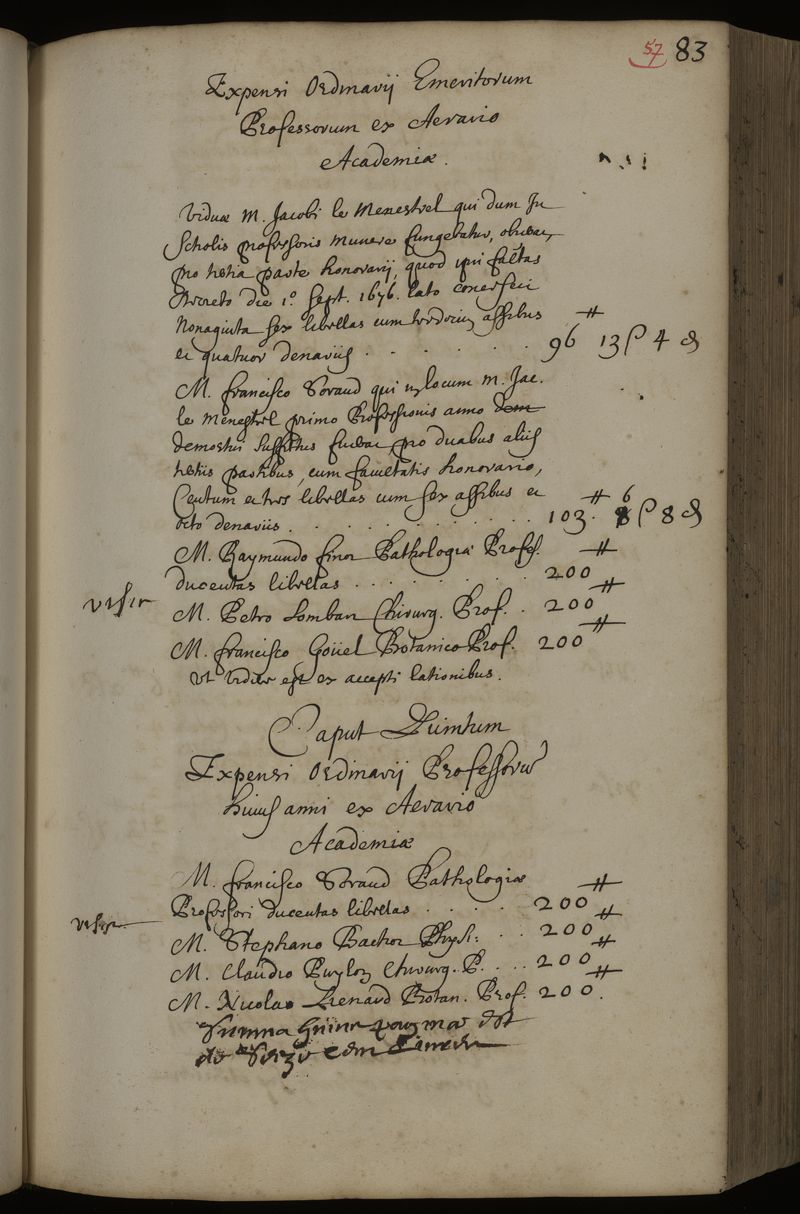 57 83
Expensi Ordinarij Emeritorum
Professorum ex Aerario
Academiæ.
Viduæ M. Jacobi le Menestrel qui dum In
Scholis professoris munere fungebatur, obierat,
pro tertia parte honorarij, quod ipsi facultas
Decreto die 1º. Sept. 1676. lato
Nonaginta sex libellas cum tredecim assibus
et quatuor denariis . . . . . . . 96 ⧺ 13 ſ 4 ₰
M. Francisco Soraud qui in locum M. Jac.
le Menestrel primo Professionis anno dem
demortui suffectus fuerat, pro duabus aliis
tertiis partibus, cum facultatis honorario,
Centum et tres libellas cum sex assibus et
octo denariis . . . . . . . . 103. ⧺ 6 8 ſ 8 ₰
M. Raymundo finot Pathologiæ Profess.
ducentas libellas . . . . . . . . 200 ⧺
M. Petro Lomban Chirurg. Prof. . 200 ⧺
M. Francisco Goüel Botanico Prof. 200 ⧺
Ut videre est ex accepti rationibus.
Caput Quintum
Expensi Ordinarij Professorū
huius anni ex Aerario
Academiæ
M. Francisco Soraud Pathologiæ
Professori ducentas libellas . . . . 200 ⧺
M. Stephano Bachot Physi. . . 200 ⧺
M. Claudio Puylon Chirurg. P. . . . 200 ⧺
M. Nicolao Lienard Botan. Prof. 200 ⧺.
Summa